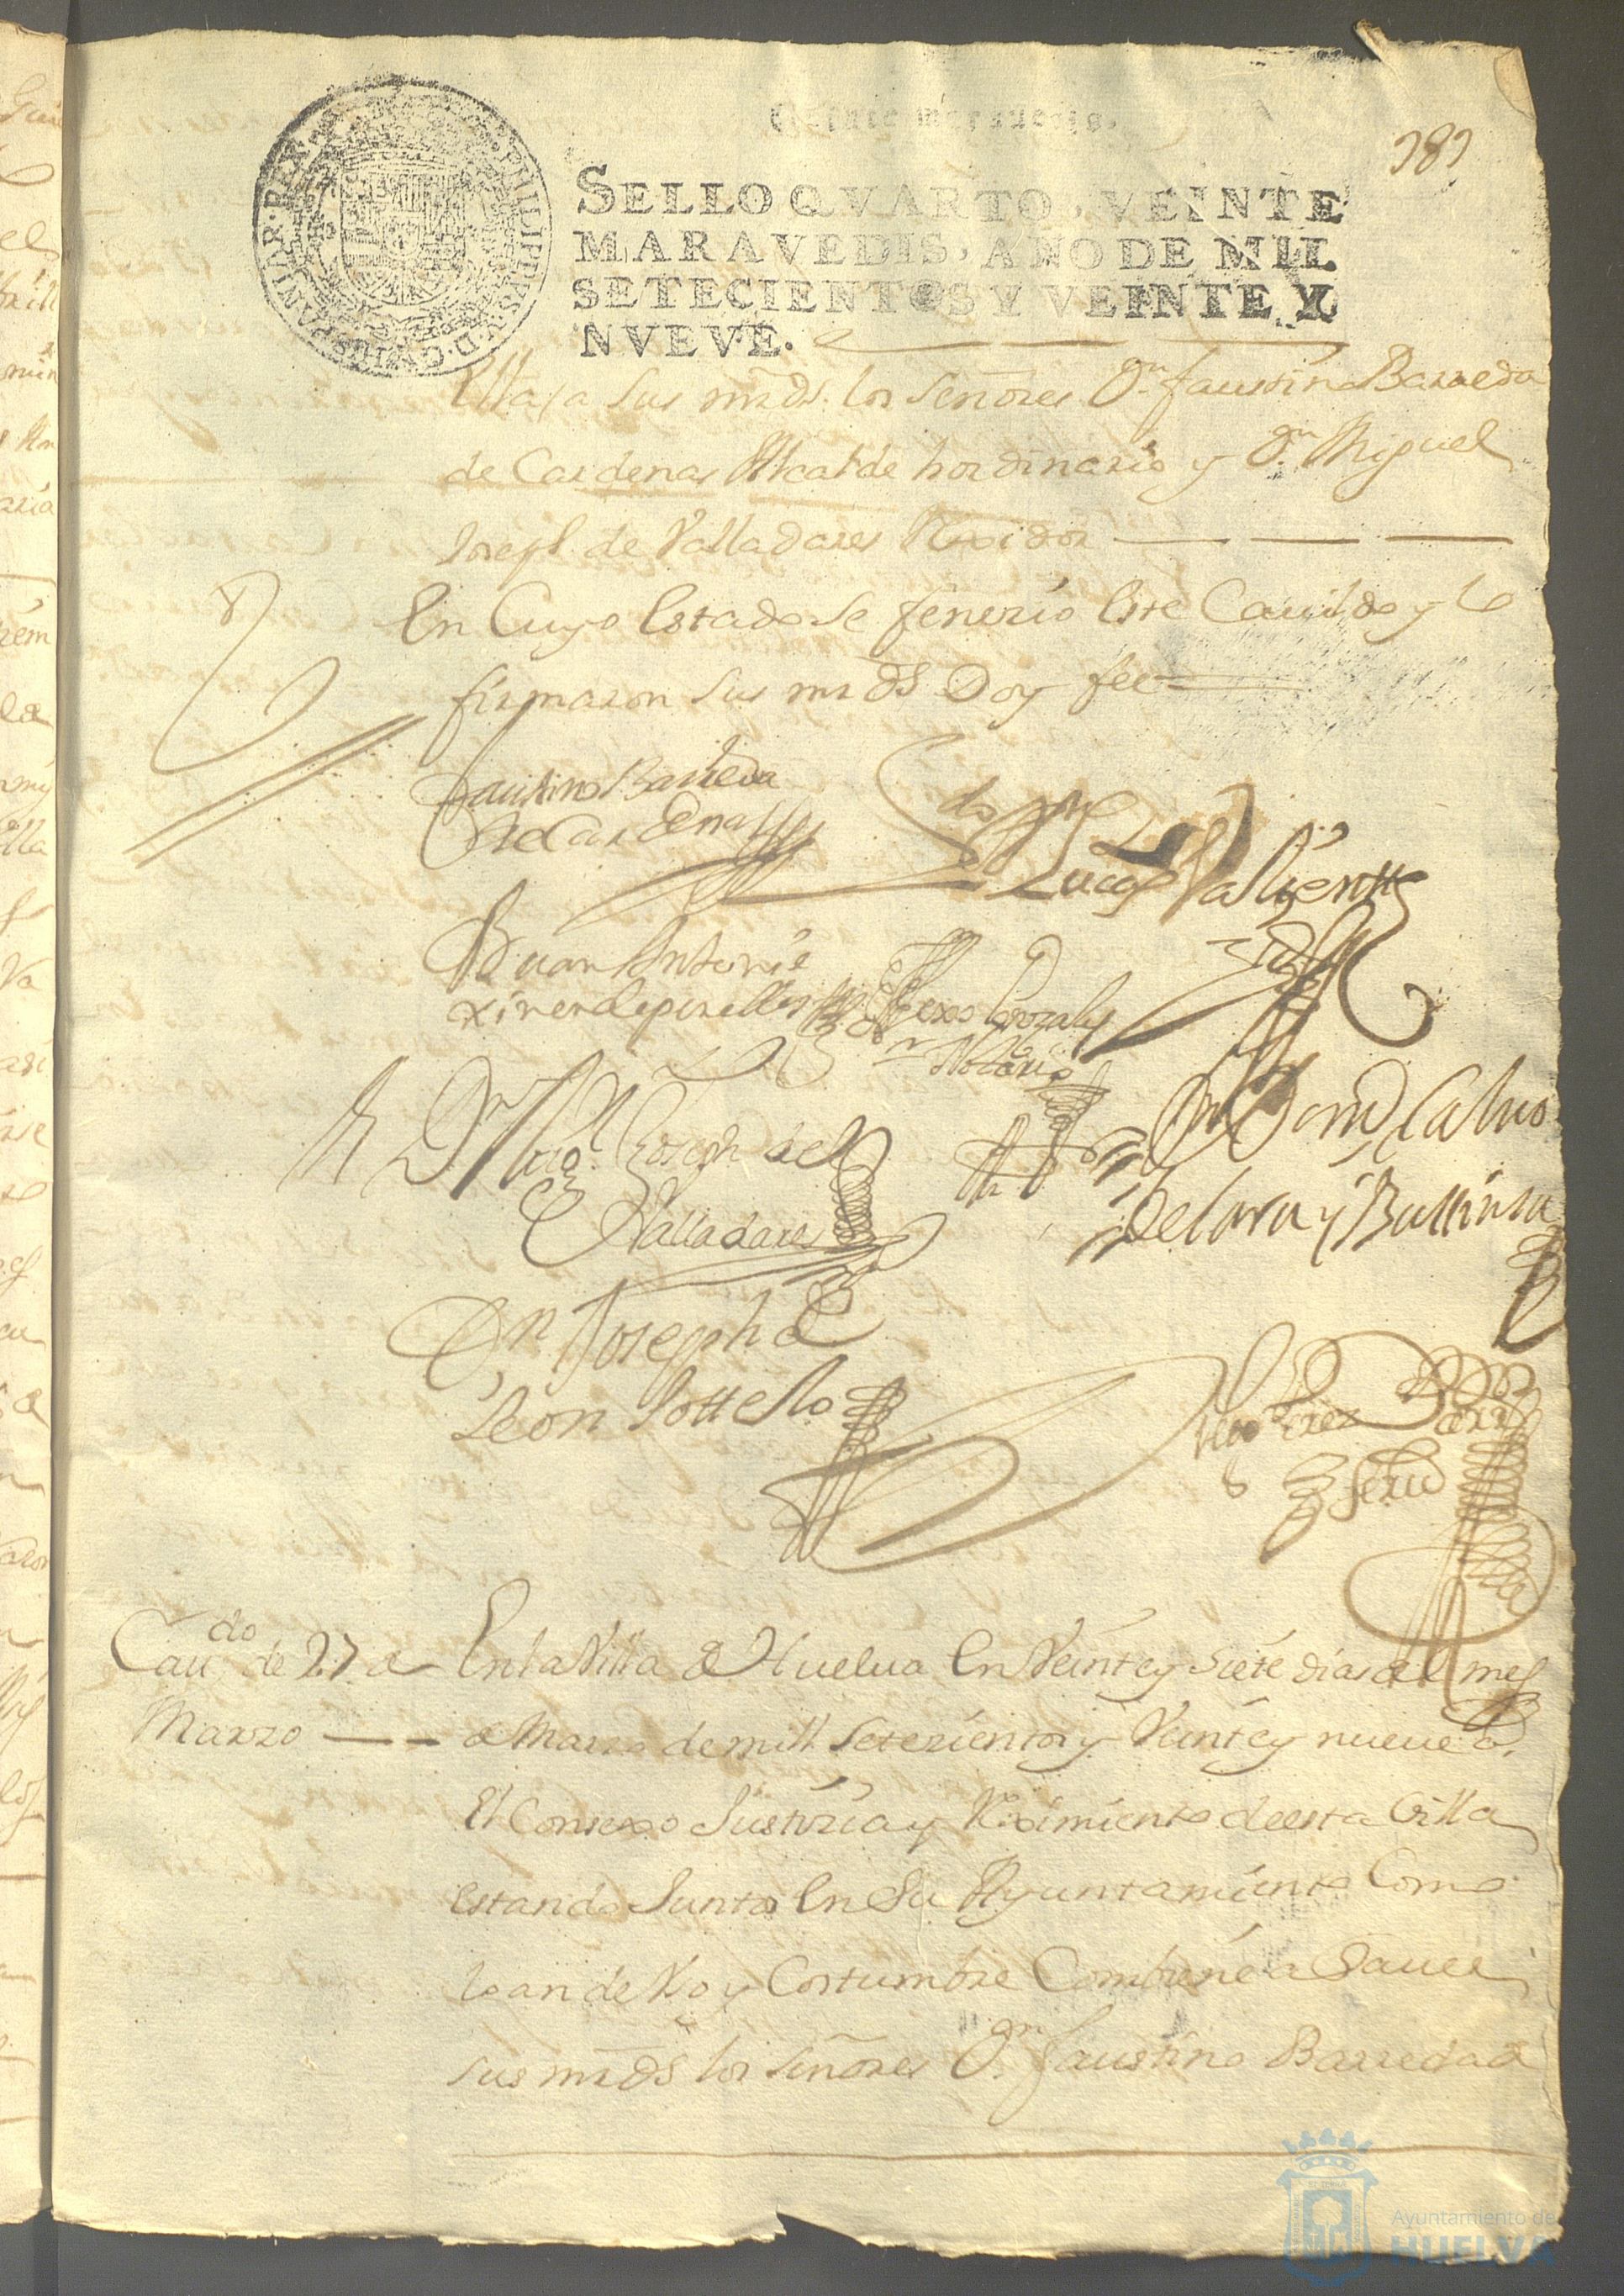 Veinte marauedis.
282
PHILIPPUS. V. D. G. HISPANIAR. REX.
SELLO QVARTO, VEINTE
MARAVEDIS, AÑO DE MIL
SETECIENTOS Y VEINTE Y
NVEVE.
sus mrds. los señores Dn. faustino Barreda
de Cardenas Alcalde hordinario y Dn. Miguel
Joseph de Valladares Rexidor
En Cuyo Estado se fenezio Este Cauildo y lo
firmaron sus mrds Doy fee
Faustino Barreda
de Cardenas
Lucas Valiente
Juan Antonio
Gonzales
Notario
Dn Joseph de
Valladares
Calvo
de lara y
Dn Joseph de
Leon Sottello
Perez
Caudo. de 27 de
Marzo
En la Villa de Huelua En Veinte y Siete dias del mes
de Marzo de mill Setezientos y Veinte y nueue as.
El Consexo Justizia y Reximiento de esta Villa
estando Juntos En Su Ayuntamiento Como
lo an de Vso y Costumbre Combiene a Sauer
sus mrds los señores Dn. faustino Barreda de
Ayuntamiento de
HUELVA